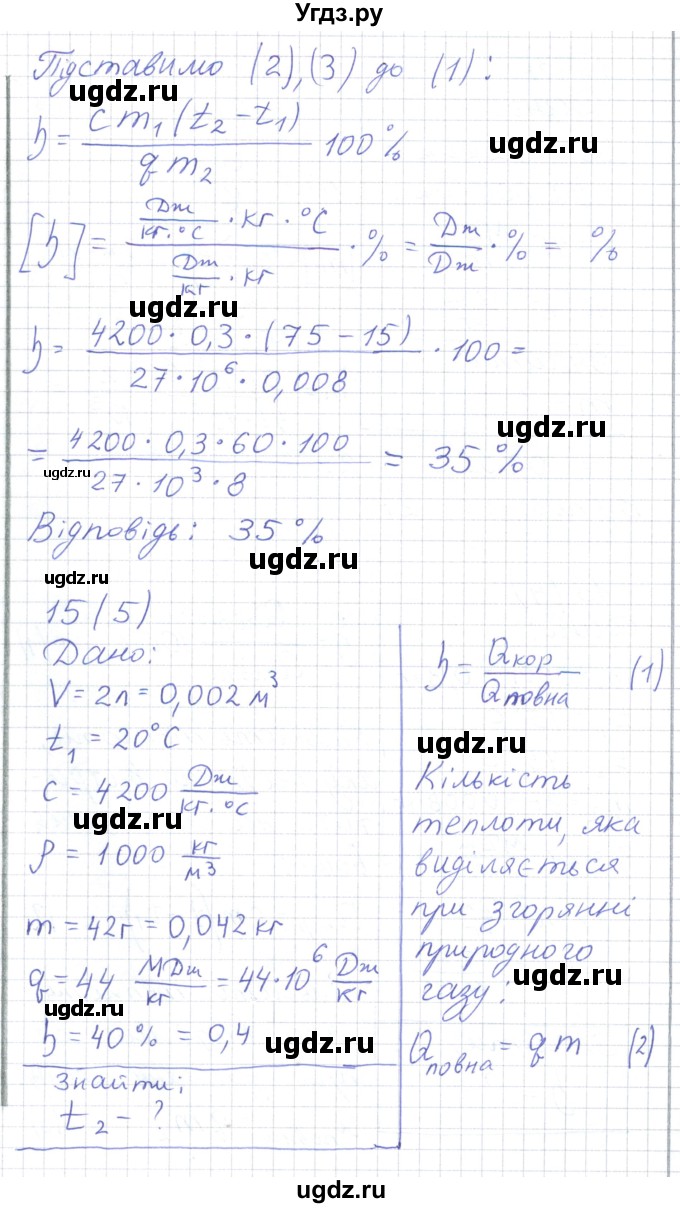 Угдз.ру
Підставимо (2), (3) до (1):
ugdz.ru
η = c m₁ (t₂ – t₁) / q m₂ 100 %
ugdz.ru
[η] = (Дж/кг·°С · кг · °С) / (Дж/кг · кг) · % = Дж/Дж · % = %
ugdz.ru
η = 4200 · 0,3 · (75 – 15) / 27 · 10⁶ · 0,008 · 100 =
ugdz.ru
= 4200 · 0,3 · 60 · 100 / 27 · 10³ · 8 = 35 %
ugdz.ru
Відповідь: 35 %
ugdz.ru
ugdz.ru
15(5)
Дано:
V = 2л = 0,002 м³
ugdz.ru
t₁ = 20°С
c = 4200 Дж/кг·°С
ugdz.ru
ρ = 1000 кг/м³
m = 42г = 0,042 кг
q = 44 МДж/кг = 44·10⁶ Дж/кг
ugdz.ru
η = 40 % = 0,4
ugdz.ru
Знайти:
t₂ – ?
η = Qкор / Qповна (1)
ugdz.ru
Кількість
теплоти, яка
виділяється
при згорянні
природного
ugdz.ru
газу:
Qповна = q m (2)
ugdz.ru